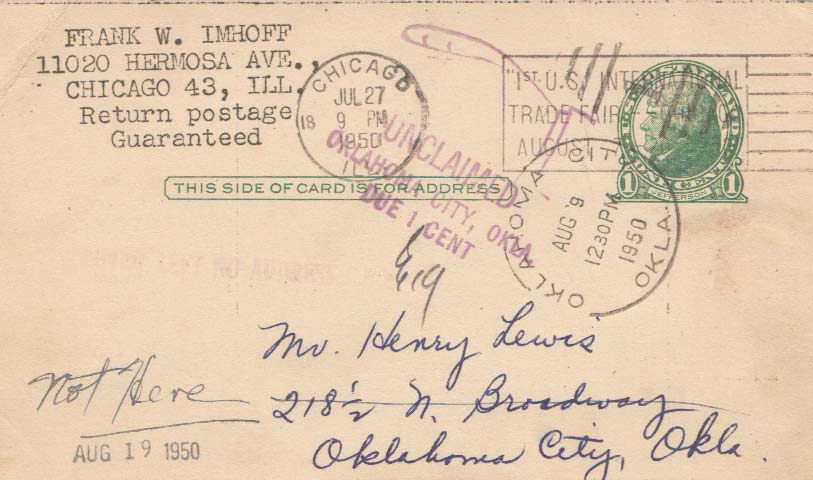 FRANK W. IMHOFF
11020 HERMOSA AVE.,
CHICAGO 43, ILL.
Return postage
Guaranteed
CHICAGO
JUL 27
9 PM
1950
ILL.
18
"1ST U.S. INTERNATIONAL
TRADE FAIR
AUGUST
1 CENT 1
JEFFERSON
THIS SIDE OF CARD IS FOR ADDRESS
UNCLAIMED
OKLAHOMA CITY, OKLA.
DUE 1 CENT
OKLAHOMA CITY
AUG 9
1230 PM
1950
OKLA.
Mr. Henry Lewis
218½ N. Broadway
Oklahoma City, Okla.
Not Here
AUG 19 1950